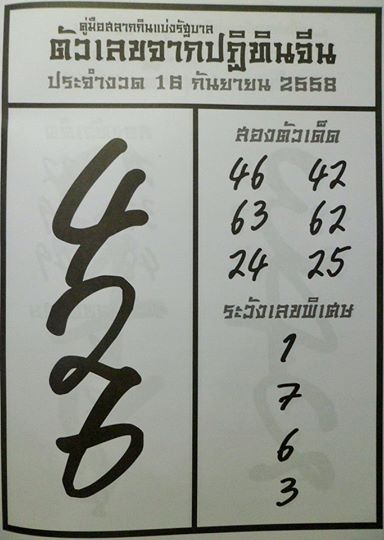 คู่มือสลากกินแบ่งรัฐบาล
ตัวเลขจากปฏิทินจีน
ประจำงวด 16 กันยายน 2558
426
สองตัวเด็ด
46 42
63 62
24 25
ระวังเลขพิเศษ
1
7
6
3